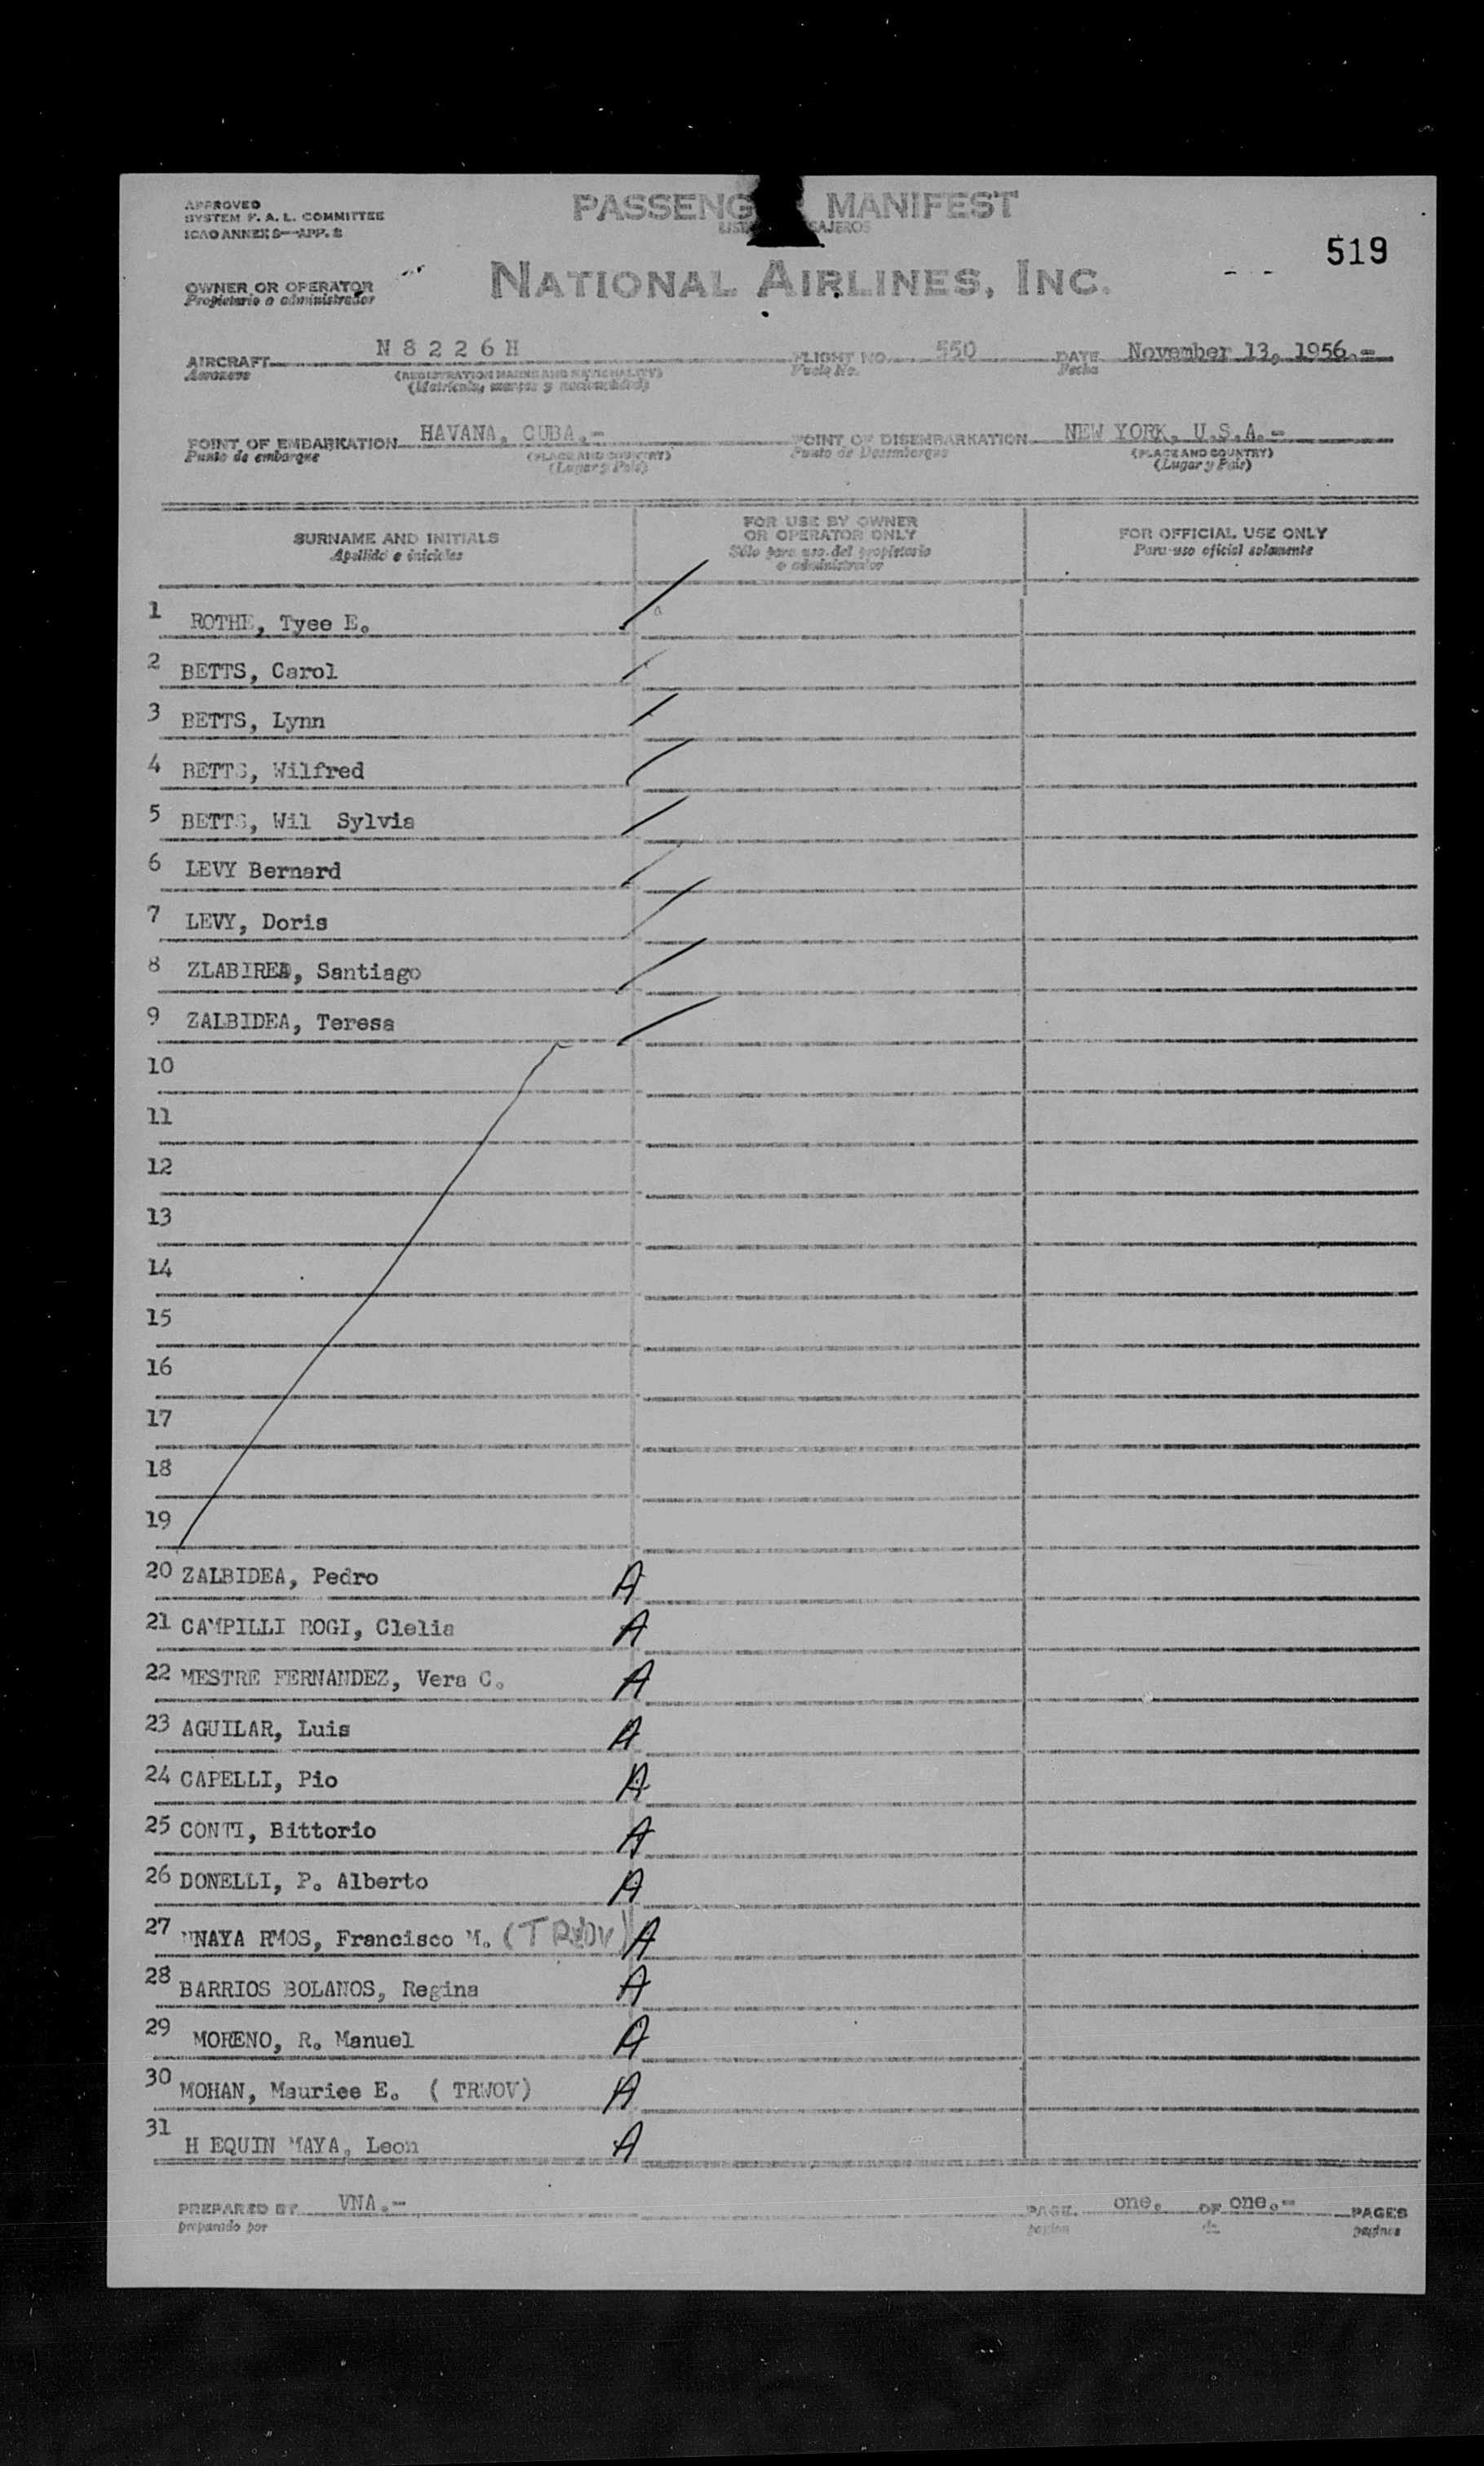 APPROVED
SYSTEM F. A. L. COMMITTEE
ICAO ANNEX 9—APP. 2
PASSENG MANIFEST
LIST SAJEROS
519
OWNER OR OPERATOR
Propietario o administrador
NATIONAL AIRLINES, INC.
AIRCRAFT N 8 2 2 6 H FLIGHT NO. 550 DATE November 13, 1956.-
Aeronave (REGISTRATION MARKS AND NATIONALITY) Vuelo No. Fecha
(Matrícula, marcas y nacionalidad)
POINT OF EMBARKATION HAVANA, CUBA.- POINT OF DISEMBARKATION NEW YORK, U.S.A.-
Punto de embarque (PLACE AND COUNTRY) Punto de Desembarque (PLACE AND COUNTRY)
(Lugar y País) (Lugar y País)
SURNAME AND INITIALS FOR USE BY OWNER OR OPERATOR ONLY FOR OFFICIAL USE ONLY
Apellido e iniciales Sólo para uso del propietario o administrador Para uso oficial solamente
1 ROTHE, Tyee E.
2 BETTS, Carol
3 BETTS, Lynn
4 BETTS, Wilfred
5 BETTS, Wil Sylvia
6 LEVY Bernard
7 LEVY, Doris
8 ZLABIREA, Santiago
9 ZALBIDEA, Teresa
10
11
12
13
14
15
16
17
18
19
20 ZALBIDEA, Pedro A
21 CAMPILLI ROGI, Clelia A
22 MESTRE FERNANDEZ, Vera C. A
23 AGUILAR, Luis A
24 CAPELLI, Pio A
25 CONTI, Bittorio A
26 DONELLI, P. Alberto A
27 RMOS, Francisco M. (TRWOV) A
28 BARRIOS BOLANOS, Regina A
29 MORENO, R. Manuel A
30 MOHAN, Mauriee E. ( TRWOV) A
31 H EQUIN MAYA, Leon A
PREPARED BY VNA.- PAGE one. OF one.- PAGES
preparado por pagina de paginas